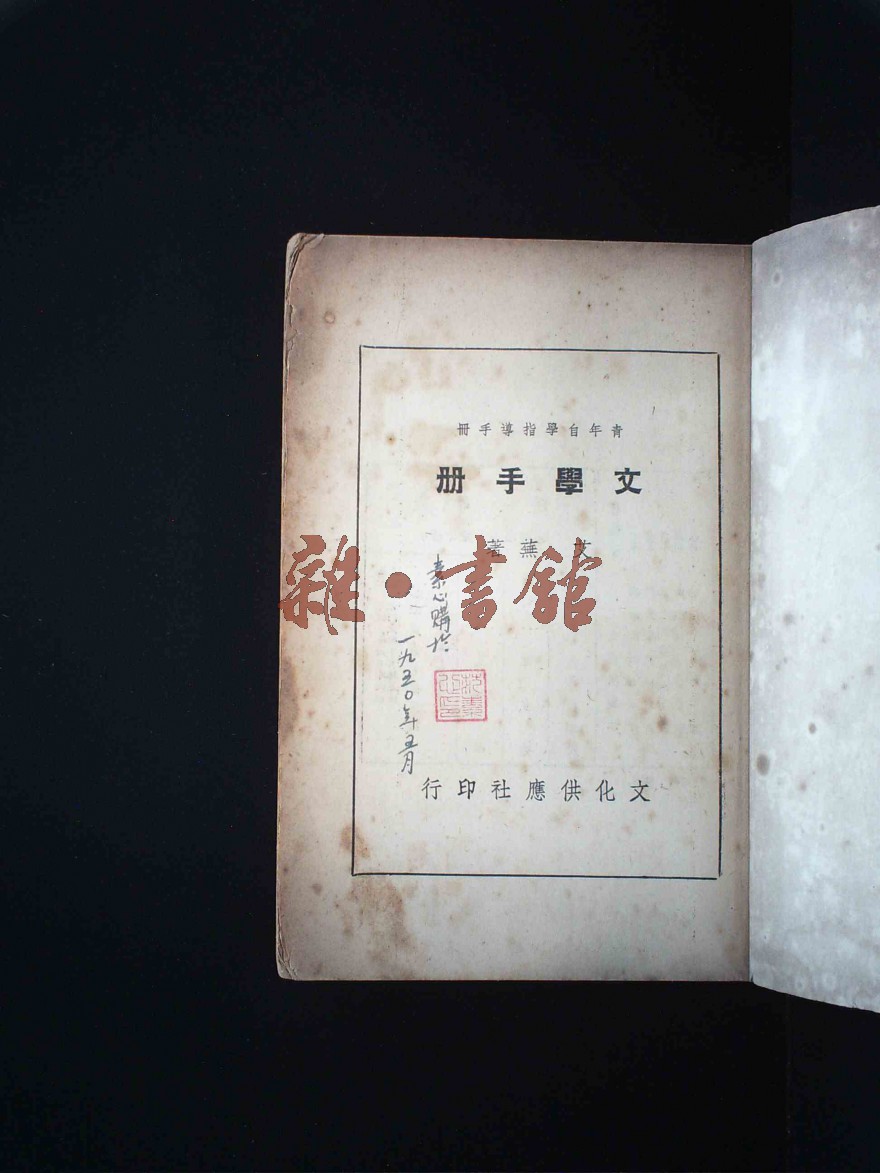 青年自學指導手冊
文學手册
艾蕪著
雜·書館
素心購於
一九五〇年五月
文化供應社印行